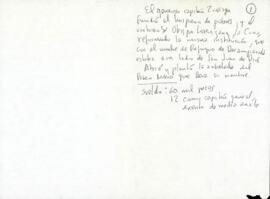 El general capitán Zúñiga ①
fundó el hospicio de pobres, y el
virtuoso Obispo
reformando la misma institución, que
con el nombre de Refugio de Desamparados
estaba a un lado de San Juan de Dios
Abrió y plantó la arboleda del
Paseo Nuevo que lleva su nombre.
Sueldo: 60 mil pesos
12 como capitán general
exento de media anata